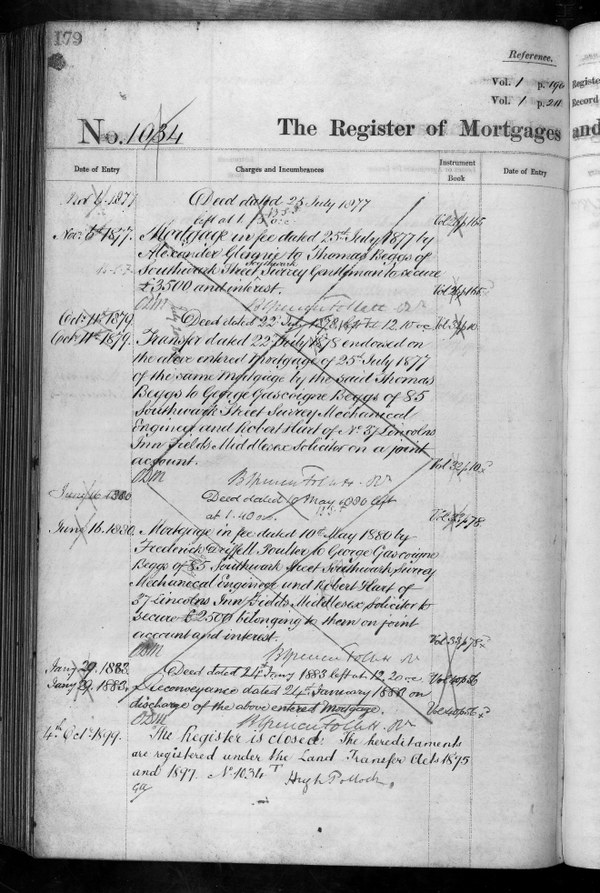 179
Reference.
Vol. 1 p. 196
Vol. 1 p. 211
Registe
Record
No. 1034
The Register of Mortgages
and
Date of Entry
Charges and Incumbrances
Instrument
Book
Date of Entry
Nov 6. 1877
Deed dated 25 July 1877
left at 1
Vol 24 p 165
Nov. 6th 1877.
Mortgage in fee dated 25th July 1877 by
Alexander Glennie to Thomas Beggs of
Southwark
Southwark Street Surrey Gentleman to secure
£3500 and interest.
Vol 24 p 165
BSpencer Follett Rr
Octr 11th 1879.
Deed dated 22 July 1878 left at 12.10 oc
Octr 11th 1879.
Transfer dated 22 July 1878 endorsed on
the above entered Mortgage of 25th July 1877
of the same Mortgage by the said Thomas
Beggs to George Gascoigne Beggs of 85
Southwark Street Surrey Mechanical
Engineer and Robert Hart of No. 37 Lincolns
Inn Fields Middlesex Solicitor on a joint
account.
Vol 32 p 10
BSpencer Follett Rr
June 16 1880
Deed dated 10 May 1880 left
at 1.40 oc.
Vol 33 p 78
June 16. 1880.
Mortgage in fee dated 10th May 1880 by
Frederick Poulter to George Gascoigne
Beggs of 85 Southwark Street Southwark Surrey
Mechanical Engineer and Robert Hart of
37 Lincolns Inn Fields Middlesex Solicitor to
secure £2500 belonging to them on joint
account and interest.
Vol 33 p 78
BSpencer Follett Rr
Jany 29. 1883.
Deed dated 24th Jany 1883 left at 12.20 oc.
Vol 40 p 56
Jany 29. 1883.
Reconveyance dated 24th January 1883 on
discharge of the above entered Mortgage.
Vol 40 p 56
BSpencer Follett Rr
4th Octr 1899.
The Register is closed. The hereditaments
are registered under the Land Transfer Acts 1875
and 1897. No 1034 T
Hugh Pollock.